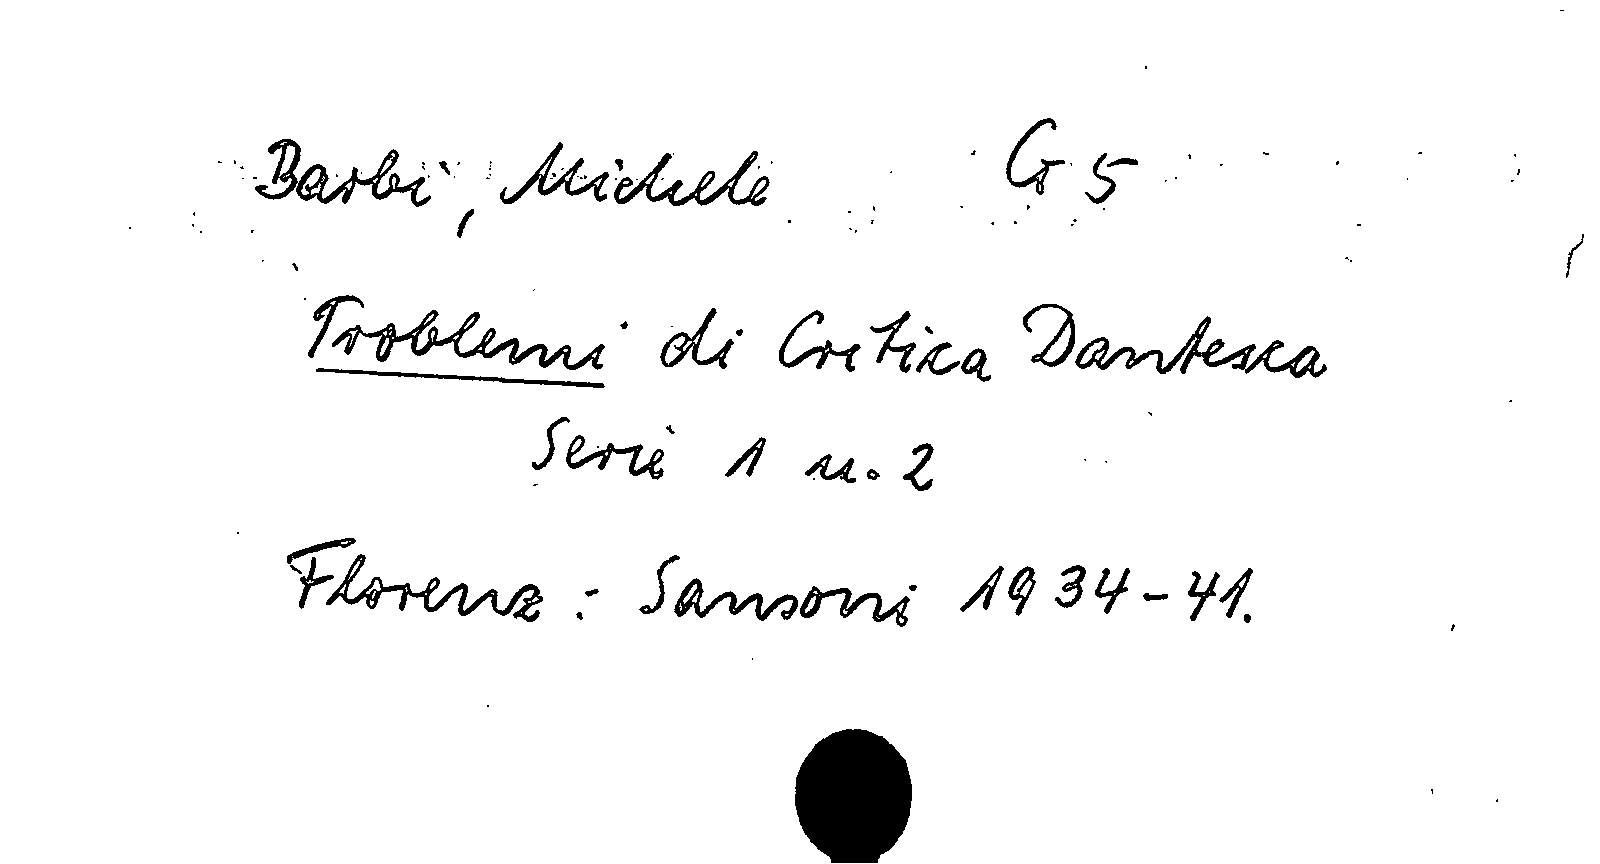 Barbi, Michele G 5
Problemi di Critica Dantesca
Serie 1 u. 2
Florenz: Sansoni 1934-41.